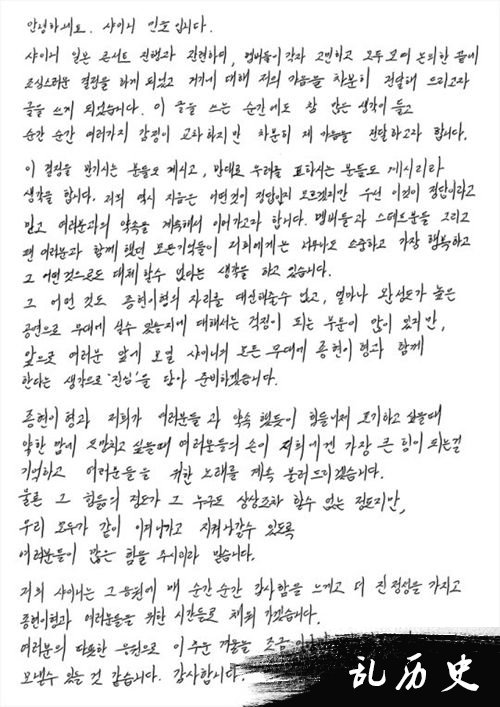 안녕하세요. 샤이니 민호입니다.
샤이니 일본 콘서트 진행과 관련하여, 멤버들이 각자 고민하고 모두 모여 논의한 끝에
조심스러운 결정을 하게 되었고 거기에 대해 저의 마음을 차분히 전달해 드리고자
글을 쓰게 되었습니다. 이 글을 쓰는 순간에도 참 많은 생각이 들고
순간 순간 여러가지 감정이 교차하지만 차분히 제 마음을 전달하고자 합니다.
이 결정을 반기시는 분들도 계시고, 반대로 우려를 표하시는 분들도 계시리라
생각을 합니다. 저희 역시 지금은 어떤것이 정답인지 모르겠지만 우선 이것이 정답이라고
믿고 여러분과의 약속을 계속해서 이어가고자 합니다. 멤버들과 스태프분들 그리고
팬 여러분과 함께 했던 모든기억들이 저희에게는 너무나도 소중하고 가장 행복하고
그 어떤것으로도 대체할수 없다는 생각을 하고 있습니다.
그 어떤 것도 종현이형의 자리를 대신해줄수 없고, 얼마나 완성도가 높은
공연으로 무대에 설수 있을지에 대해서는 걱정이 되는 부분이 많이 있지만,
앞으로 여러분 앞에 보일 샤이니의 모든 무대에 종현이 형과 함께
한다는 생각으로 '진심'을 담아 준비하겠습니다.
종현이 형과 저희가 여러분들과 약속 했듯이 힘들어서 포기하고 싶을때
약한 맘에 도망치고 싶을때 여러분들의 손이 저희에겐 가장 큰 힘이 되는걸
기억하고 여러분들을 위한 노래를 계속 불러드리겠습니다.
물론 그 힘듦의 정도가 그 누구도 상상조차 할수 없는 정도지만,
우리 모두가 같이 이겨나가고 지켜나갈수 있도록
여러분들이 많은 힘을 주시리라 믿습니다.
저희 샤이니는 그 응원에 매 순간순간 감사함을 느끼고 더 진정성을 가지고
종현이형과 여러분들을 위한 시간들로 채워 가겠습니다.
여러분의 따뜻한 응원으로 이 추운 겨울을 조금
보낼수 있을 것 같습니다. 감사합니다.
乱历史